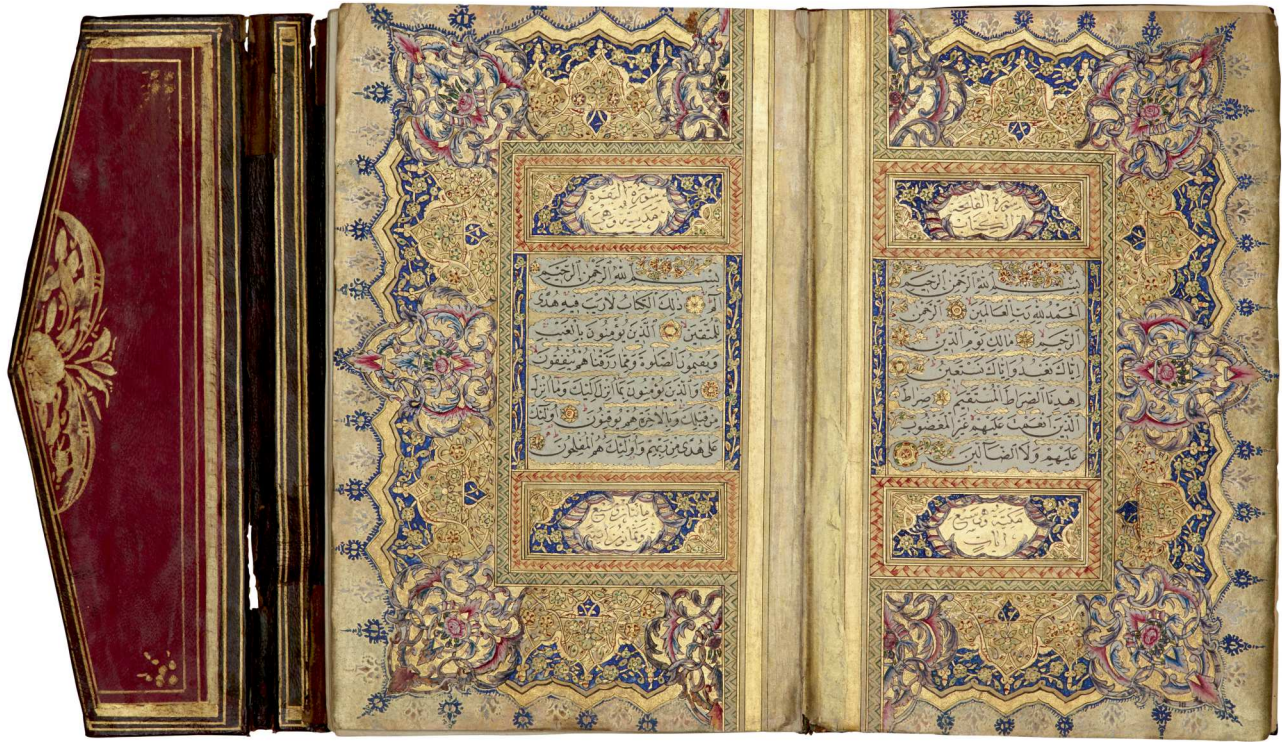 سورة الفاتحة
الكتاب
بسم الله الرحمن الرحيم
الحمد لله رب العالمين الرحمن
الرحيم مالك يوم الدين
اياك نعبد واياك نستعين
اهدنا الصراط المستقيم صراط
الذين انعمت عليهم غير المغضوب
عليهم ولا الضالين
مكية وهي سبع
آيات
سورة البقرة
مدنية وهي
بسم الله الرحمن الرحيم
الم ذلك الكتاب لا ريب فيه هدى
للمتقين الذين يؤمنون بالغيب
ويقيمون الصلوة ومما رزقناهم ينفقون
والذين يؤمنون بما انزل اليك وما انزل
من قبلك وبالآخرة هم يوقنون اولئك
على هدى من ربهم واولئك هم المفلحون
مائتان